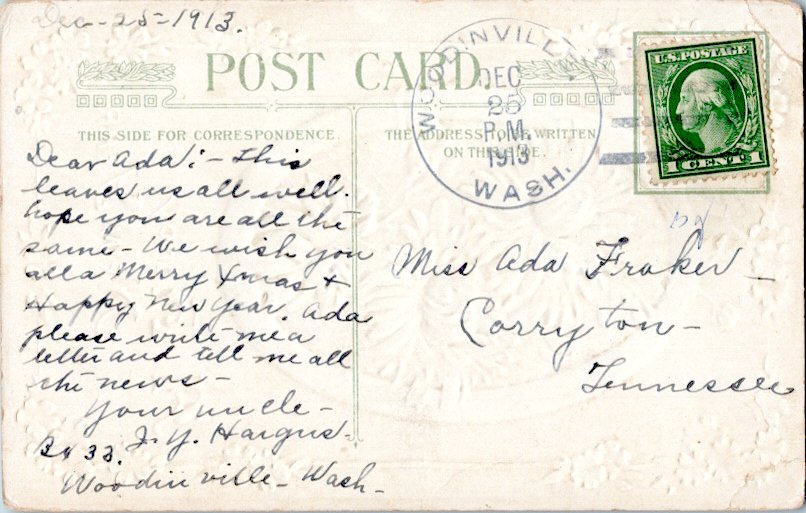 Dec - 25 - 1913.
POST CARD
WOODINVILLE
DEC
25
P.M.
1913
WASH.
U.S. POSTAGE
1 CENT 1
THIS SIDE FOR CORRESPONDENCE.
THE ADDRESS TO BE WRITTEN
ON THIS SIDE.
Dear Ada: - This
leaves us all well.
hope you are all the
same - We wish you
all a Merry Xmas +
Happy New Year. Ada
please write me a
letter and tell me all
the news -
Your uncle -
J. Y. Hargus -
Bx 33.
Woodinville - Wash -
Miss Ada Fraker -
Corryton -
Tennessee